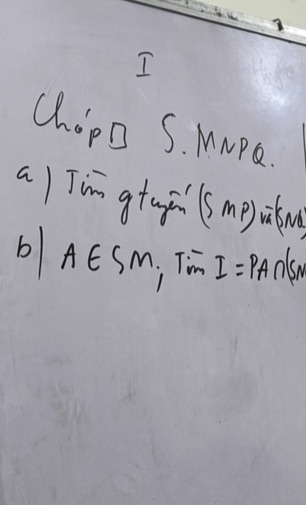 I
Chóp □ S.MNPQ.
a) Tìm gtuyến (SMP) và (SNQ)
b) A ∈ SM; Tìm I = PA ∩ (SN